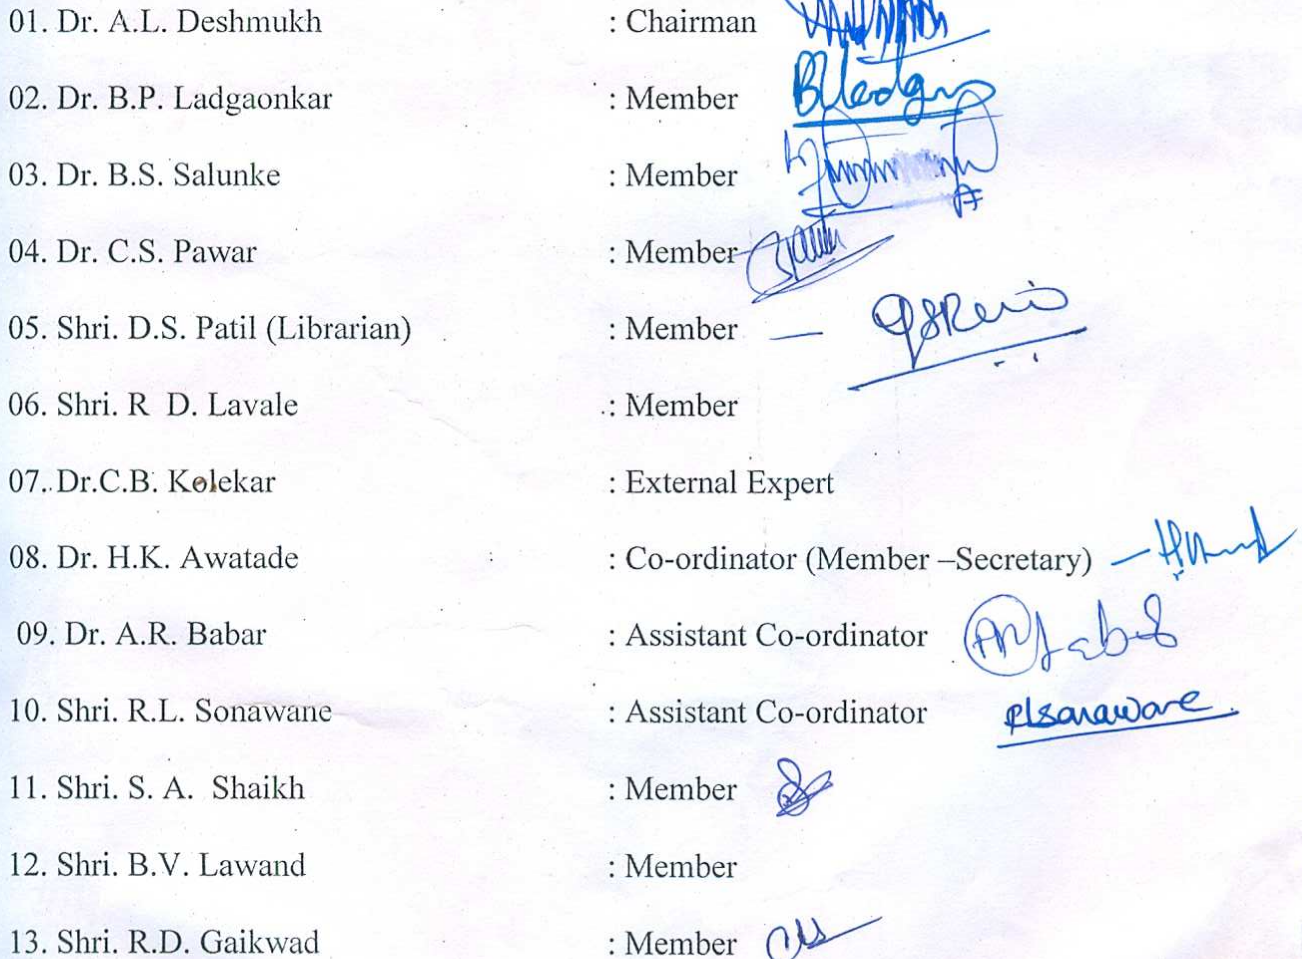 01. Dr. A.L. Deshmukh : Chairman
02. Dr. B.P. Ladgaonkar : Member
03. Dr. B.S. Salunke : Member
04. Dr. C.S. Pawar : Member
05. Shri. D.S. Patil (Librarian) : Member —
06. Shri. R D. Lavale : Member
07. Dr.C.B. Kolekar : External Expert
08. Dr. H.K. Awatade : Co-ordinator (Member –Secretary) —
09. Dr. A.R. Babar : Assistant Co-ordinator
10. Shri. R.L. Sonawane : Assistant Co-ordinator Rlsonawane.
11. Shri. S. A. Shaikh : Member
12. Shri. B.V. Lawand : Member
13. Shri. R.D. Gaikwad : Member